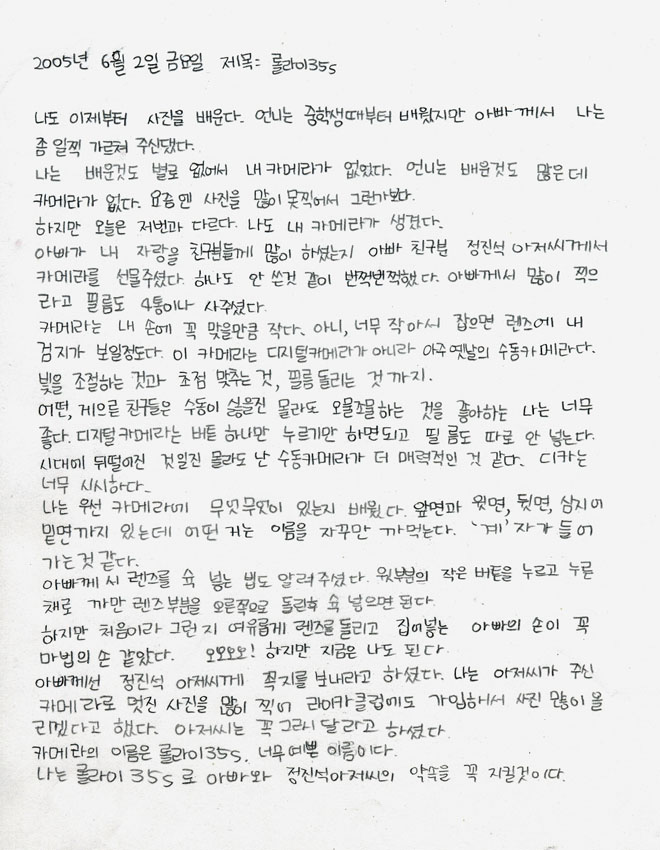 2005년 6월 2일 금요일 제목: 롤라이35s
나도 이제부터 사진을 배운다. 언니는 중학생때부터 배웠지만 아빠께서 나는
좀 일찍 가르쳐 주신댔다.
나는 배운것도 별로 없어서 내 카메라가 없었다. 언니는 배운것도 많은데
카메라가 없다. 요즘엔 사진을 많이 못찍어서 그런가보다.
하지만 오늘은 저번과 다르다. 나도 내 카메라가 생겼다.
아빠가 내 자랑을 친구분들께 많이 하셨는지 아빠 친구분 정진석 아저씨께서
카메라를 선물주셨다. 하나도 안 쓴것 같이 번쩍번쩍했다. 아빠께서 많이 찍으
라고 필름도 4통이나 사주셨다.
카메라는 내 손에 꼭 맞을만큼 작다. 아니, 너무 작아서 잡으면 렌즈에 내
검지가 보일정도다. 이 카메라는 디지털카메라가 아니라 아주 옛날의 수동카메라다.
빛을 조절하는 것과 초점 맞추는 것, 필름 돌리는 것 까지.
어떤, 게으른 친구들은 수동이 싫을진 몰라도 오물조물하는 것을 좋아하는 나는 너무
좋다. 디지털카메라는 버튼 하나만 누르기만 하면되고 필름도 따로 안 넣는다.
시대에 뒤떨어진 것일진 몰라도 난 수동카메라가 더 매력적인 것 같다. 디카는
너무 시시하다.
나는 우선 카메라에 무엇무엇이 있는지 배웠다. 앞면과 윗면, 뒷면, 심지어
밑면까지 있는데 어떤 거는 이름을 자꾸만 까먹는다. '계'자가 들어
가는것 같다.
아빠께서 렌즈를 쑥 넣는 법도 알려주셨다. 윗부분의 작은 버튼을 누르고 누른
채로 까만 렌즈부분을 오른쪽으로 돌린후 쑥 넣으면 된다.
하지만 처음이라 그런지 여유롭게 렌즈를 돌리고 집어넣는 아빠의 손이 꼭
마법의 손 같았다. 오오오오! 하지만 지금은 나도 된다
아빠께선 정진석 아저씨께 쪽지를 보내라고 하셨다. 나는 아저씨가 주신
카메라로 멋진 사진을 많이 찍어 라이카클럽에도 가입해서 사진 많이 올
리겠다고 했다. 아저씨는 꼭 그래 달라고 하셨다
카메라의 이름은 롤라이35s. 너무 예쁜 이름이다.
나는 롤라이 35s 로 아빠와 정진석아저씨의 약속을 꼭 지킬것이다.